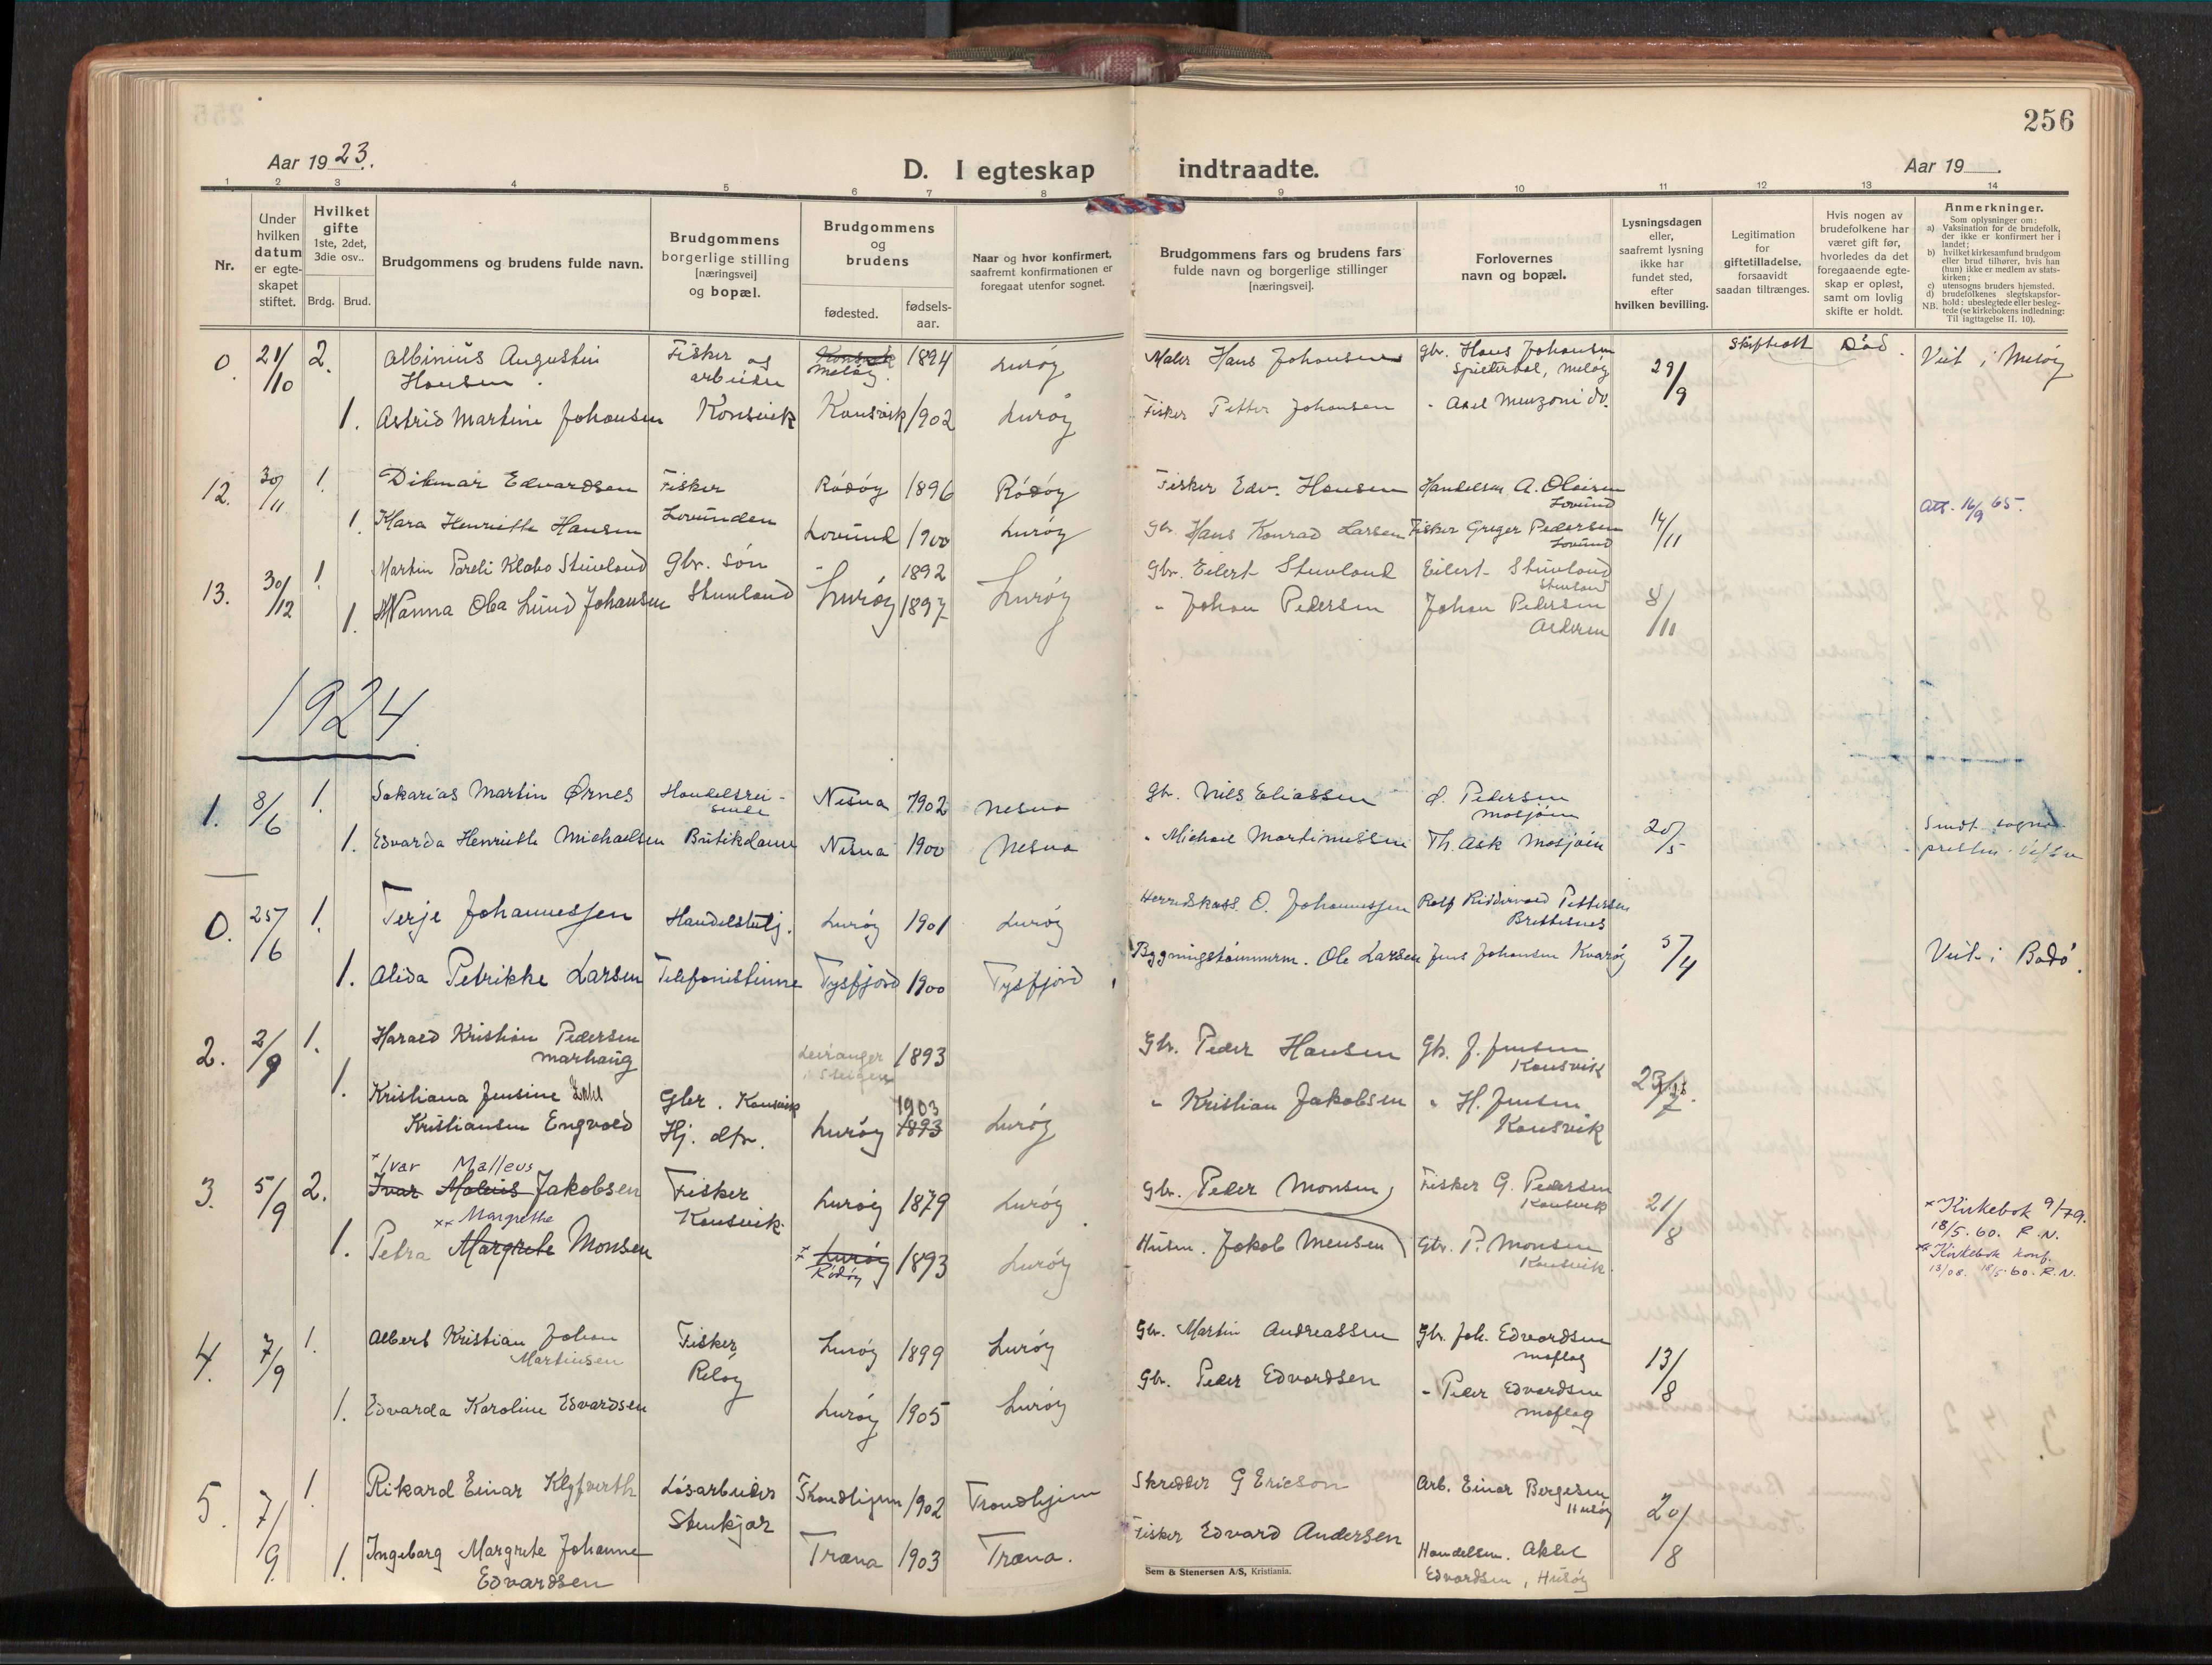 256
Aar 1923.
D. I egteskap indtraadte.
Aar 19
1 2 3 4 5 6 7 8 9 10 11 12 13 14
Nr.
Under hvilken datum er egteskapet stiftet.
Hvilket gifte 1ste, 2det, 3die osv..
Brdg. Brud.
Brudgommens og brudens fulde navn.
Brudgommens borgerlige stilling [næringsvei] og bopæl.
Brudgommens og brudens
fødested. fødsels-aar.
Naar og hvor konfirmert, saafremt konfirmationen er foregaat utenfor sognet.
Brudgommens fars og brudens fars fulde navn og borgerlige stillinger [næringsvei].
Forlovernes navn og bopæl.
Lysningsdagen eller, saafremt lysning ikke har fundet sted, efter hvilken bevilling.
Legitimation for giftetilladelse, forsaavidt saadan tiltrænges.
Hvis nogen av brudefolkene har været gift før, hvorledes da det foregaaende egteskap er opløst, samt om lovlig skifte er holdt.
Anmerkninger.
Som oplysninger om:
a) Vaksination for de brudefolk, der ikke er konfirmert her i landet;
b) hvilket kirkesamfund brudgom eller brud tilhører, hvis han (hun) ikke er medlem av statskirken;
c) utensogns bruders hjemsted.
d) brudefolkenes slegtskapsforhold: ubeslegtede eller beslegtede (se kirkebokens indledning: Til iagttagelse II. 10).
NB.
0. 21/10 2. Albinius Augustin Hansen. Fisker og arbeider Konsvik Meløy 1894 Lurøy Maler Hans Johansen Gbr. Hans Johansen Meløy 29/9 Skifteatt Død. Viet i Meløy
1. Astrid Martine Johansen Konsvik Konsvik 1902 Lurøy Fisker Petter Johansen " Axel Menzoni do.
12. 30/11 1. Dikmar Edvardsen Fisker Lovunden Rødøy 1896 Rødøy Fisker Edv. Hansen Handelsm. A. Olaisen Lovund
1. Klara Henriette Hansen Lovund 1900 Lurøy Gbr. Hans Konrad Larsen Fisker Greger Pedersen Lovund 14/11 Att. 16/9 65.
13. 30/12 1. Martin Pareli Klabo Stuvland Gbr. søn Stuvland " 1892 Gbr. Eilert Stuvland Eilert Stuvland Stuvland
1. Nanna Oba Lund Johansen Lurøy 1897 Lurøy " Johan Pedersen Johan Pedersen Aldersn 8/11
1924.
1. 8/6 1. Sakarias Martin Ørnes Handelsreisende Nesna 1902 Nesna Gbr. Nils Eliassen d. Pedersen Mosjøen
1. Edvarda Henriette Michaelsen Butikdame Nesna 1900 Nesna " Michael Martinussen Th. Ask Mosjøen 20/5 Sendt sognepresten i Vefsn
0. 25/6 1. Terje Johannessen Handelsbetj. Lurøy 1901 Lurøy Herredskass. O. Johannessen Rolf Riddervold Pettersen Brettesnes
1. Alida Petrikke Larsen Telefonistinne Tysfjord 1900 Tysfjord Bygningstømmerm. Ole Larsen Jens Johansen Kvarøy 5/4 Viet i Bodø.
2. 2/9 1. Harald Kristian Pedersen Marhaug Leiranger i Steigen 1893 Gbr. Peder Hansen Gb. J. Jensen Konsvik
1. Kristiana Jensine Kristiansen Engvold Gbr. Konsvik Hj. dtr. Lurøy 1903 1893 Lurøy " Kristian Jakobsen " H. Jensen Konsvik
3. 5/9 2. × Ivar Malleus Ivar Maleus Jakobsen Fisker Konsvik Lurøy 1879 Lurøy Gbr. Peder Monsen Fisker G. Pedersen Konsvik 21/8 × Kirkebok 9/79. 18/5.60. R.N.
1. Petra ×× Margrethe Margrete Monsen × Lurøy Rødøy 1893 Lurøy Husm. Jakob Mensen Gbr. P. Monsen Konsvik ×× Kirkebok konf. 13/08. 18/5.60. R.N.
4. 7/9 1. Albert Kristian Johan Martinsen Fisker, Reløy Lurøy 1899 Lurøy Gbr. Martin Andreassen Gbr. Joh. Edvardsen Moflag 13/8
1. Edvarda Karoline Edvardsen Lurøy 1905 Lurøy Gbr. Peder Edvardsen " Peder Edvardsen Moflag
5. 7/9 1. Rikard Einar Klyfverth Løsarbeider Stenkjær Trondhjem 1902 Trondhjem Skredder G Ericson Arb. Einar Bergesen Husøy 20/8
1. Ingeborg Margrete Johanne Edvardsen Træna 1903 Træna. Fisker Edvard Andersen Handelsm. Aksel Edvardsen, Husøy
Sem & Stenersen A/S, Kristiania.